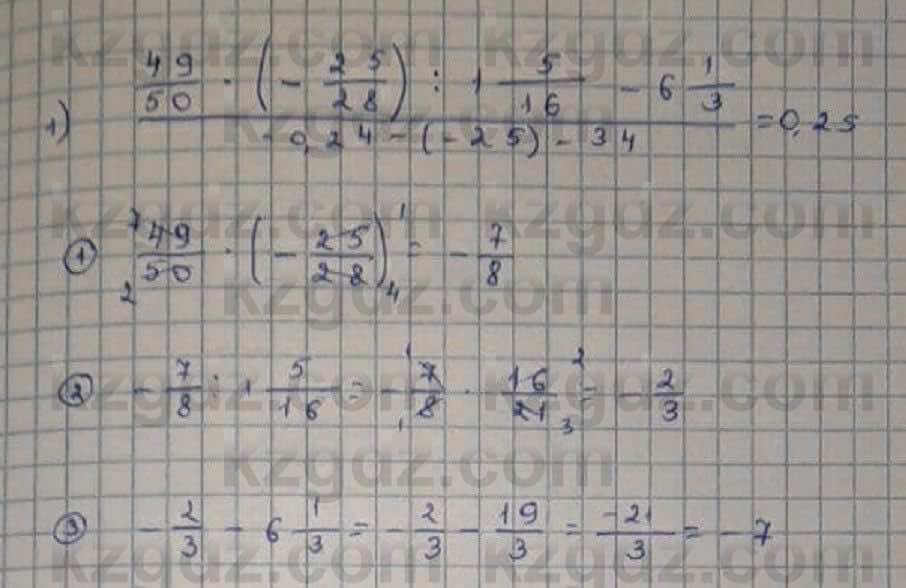 kzgdz.com kzgdz.com
1) 49/50 · (- 25/28) : 1 5/16 - 6 1/3
- 0,24 - (-25) - 34 = 0,25
kzgdz.com kzgdz.com
① 7 49/50 2 · (- 25/28) 1 4 = - 7/8
kzgdz.com
② - 7/8 : 1 5/16 = - 1 7/8 1 · 16/21 2 3 = - 2/3
kzgdz.com kzgdz.com
kzgdz.com
③ - 2/3 - 6 1/3 = - 2/3 - 19/3 = -21/3 = - 7
kzgdz.com kzgdz.com